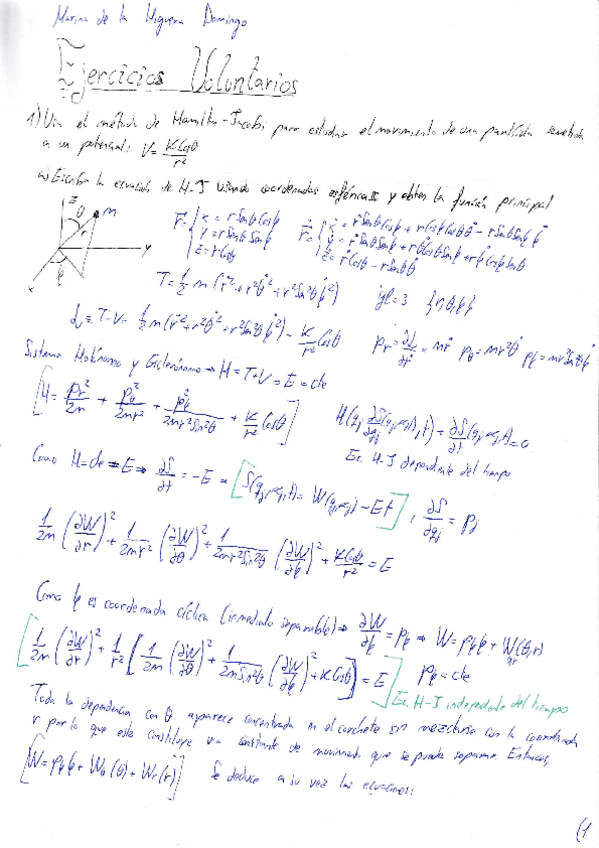 Marina de la Higuera Domingo
Ejercicios Voluntarios
1) Usa el método de Hamilton-Jacobi para estudiar el movimiento de una partícula sometida
a un potencial: V = K Cosθ / r²
a) Escriba la ecuación de H-J usando coordenadas esféricas y obten la función principal
z θ m r y x φ
r̄ = { x = r Senθ Cosφ
y = r Senθ Senφ
z = r Cosθ
ṙ̄ = { ẋ = ṙ Senθ Cosφ + r Cosφ Cosθ θ̇ - r Senθ Senφ φ̇
ẏ = ṙ Senθ Senφ + r θ̇ Cosθ Senφ + r φ̇ Cosφ Senθ
ż = ṙ Cosθ - r Senθ θ̇
T = 1/2 m (ṙ² + r² θ̇² + r² Sen²θ φ̇²) gl = 3 {r, θ, φ}
L = T - V = 1/2 m (ṙ² + r² θ̇² + r² Sen²θ φ̇²) - K/r² Cosθ p_r = ∂L/∂ṙ = mṙ p_θ = mr² θ̇ p_φ = mr² Sen²θ φ̇
Sistema Holónomo y Esclerónomo → H = T + V = E = cte
[H = p_r²/2m + p_θ²/2mr² + p_φ²/2mr² Sen²θ + K/r² Cosθ] H(q_j, ∂S(q_j, α_j, t)/∂q_j, t) + ∂S/∂t (q_j, α_j, t) = 0
Ec. H-J dependiente del tiempo
Como H = cte = E ⇒ ∂S/∂t = -E ⇒ [S(q_j, α_j, t) = W(q_j, α_j) - Et], ∂S/∂q_j = p_j
1/2m (∂W/∂r)² + 1/2mr² (∂W/∂θ)² + 1/2mr² Sen²θ (∂W/∂φ)² + K Cosθ/r² = E
Como φ es coordenada cíclica (inmediato separable) ⇒ ∂W/∂φ = p_φ ⇒ W = p_φ φ + W_θr(θ, r)
[1/2m (∂W/∂r)² + 1/r² [1/2m (∂W/∂θ)² + 1/2m Sen²θ (∂W/∂φ)² + K Cosθ] = E] p_φ = cte
Ec. H-J independiente del tiempo
Toda la dependencia con θ aparece concentrada en el corchete sin mezclarse con la coordenada
r por lo que este constituye una constante de movimiento que se puede separar. Entonces,
[W = p_φ φ + W_θ(θ) + W_r(r)] Se deduce a su vez las ecuaciones:
(1